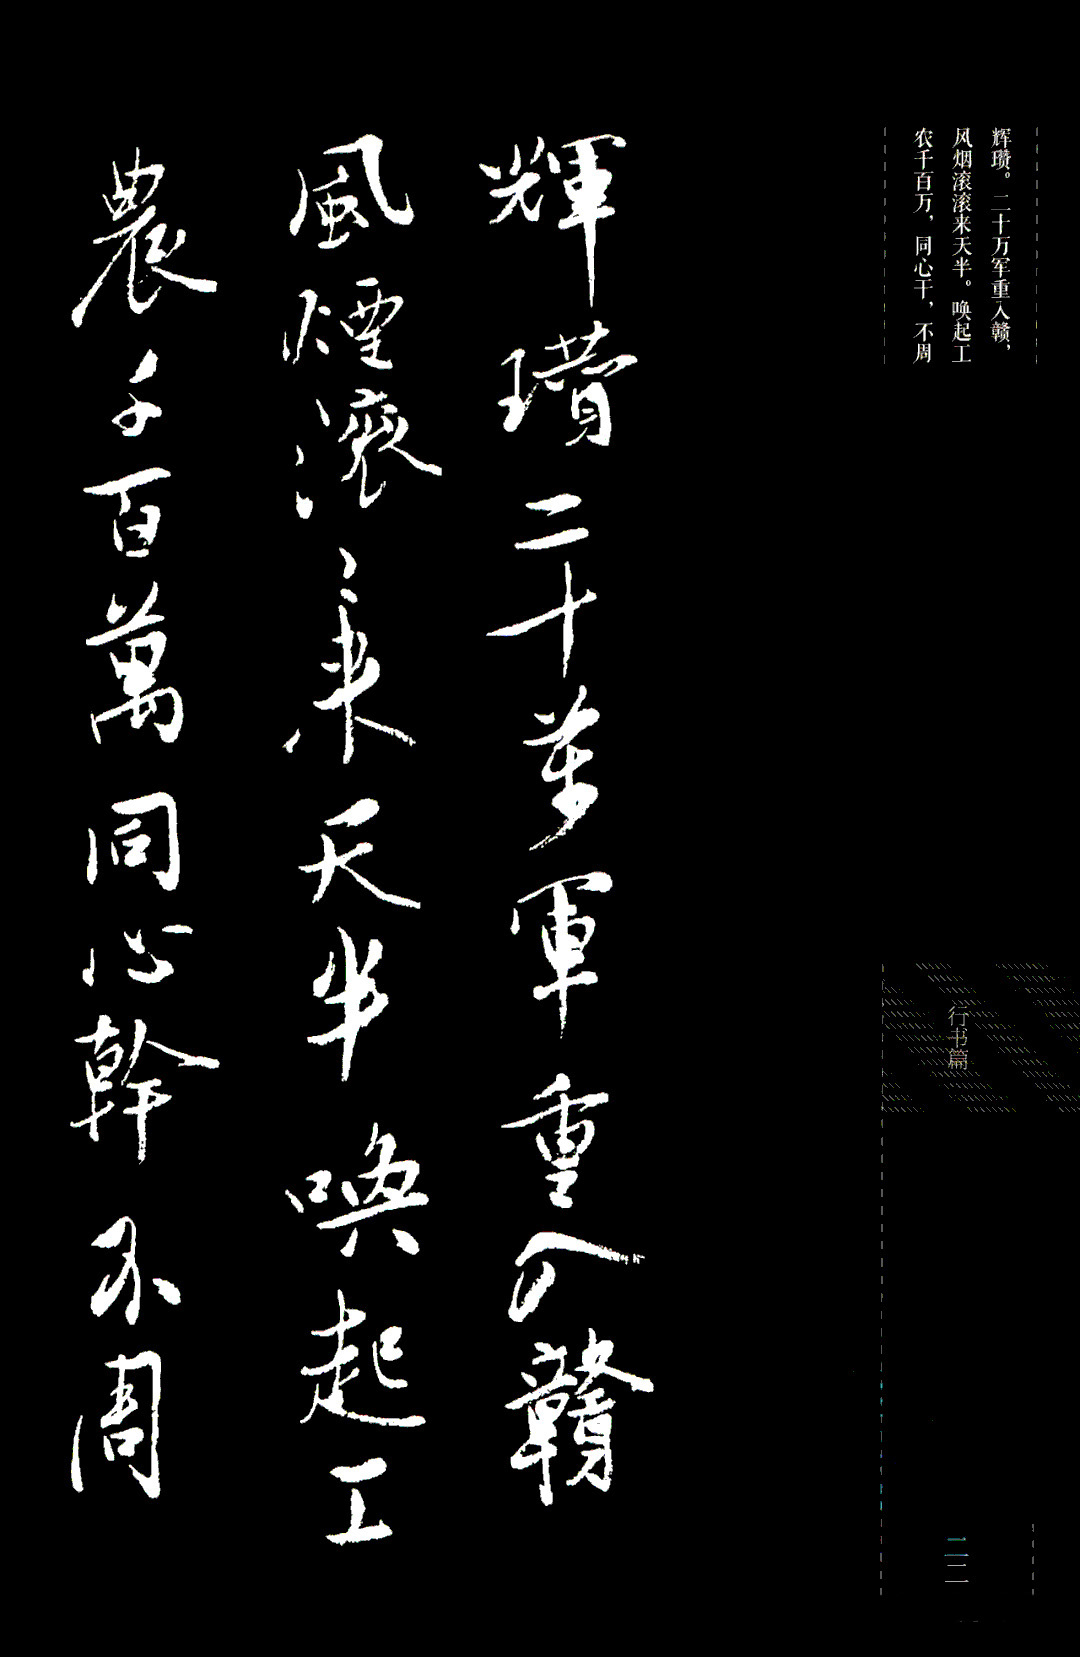 辉瓒。二十万军重入赣，
风烟滚滚来天半。唤起工
农千百万，同心干，不周
行书篇
二二
輝瓚二十萬軍重入贛
風煙滚〻來天半 唤起工
農千百萬同心幹 不周